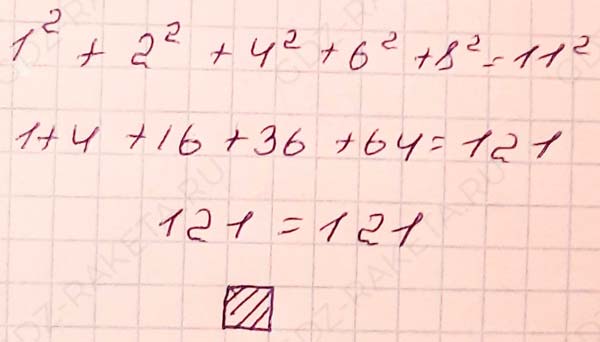 1² + 2² + 4² + 6² + 8² = 11²
1 + 4 + 16 + 36 + 64 = 121
121 = 121
GDZ-RAKETA.RU